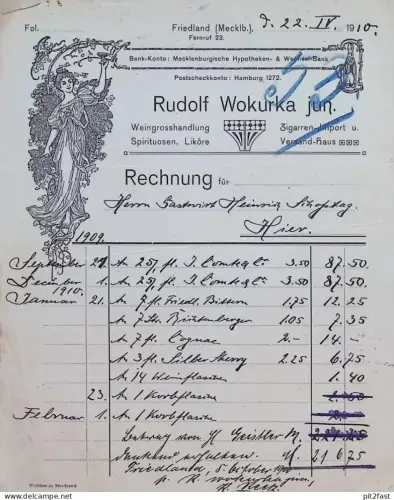 Fol.
Friedland (Mecklb.), d. 22. IV. 1910.
Fernruf 23.
Bank-Konto: Mecklenburgische Hypotheken- & Wechsel-Bank
Postscheckkonto: Hamburg 1272.
Rudolf Wokurka jun.
Weingrosshandlung Zigarren-Import u.
Spirituosen, Liköre Versand-Haus
Rechnung für
Herrn Gastwirt Heinrich
Hier.
1909.
September 27. An 25/1 fl. 3.50 87.50
Dezember 1. An 25/1 fl. 3.50 87.50
1910.
Januar 21. An 7 fl. Friedl. Bittern 1.75 12.25
An 7 1.05 7.35
An 7 fl. Cognac 2.– 14.–
An 3 fl. Silber Sherry 2.25 6.75
An 14 Weinflaschen 1.40
23. An 1 Korbflasche
Februar 1. An 1 Korbflasche
Betrag von Geistler M.
dankend erhalten. M. 216.75
Friedland, 5. October 1910